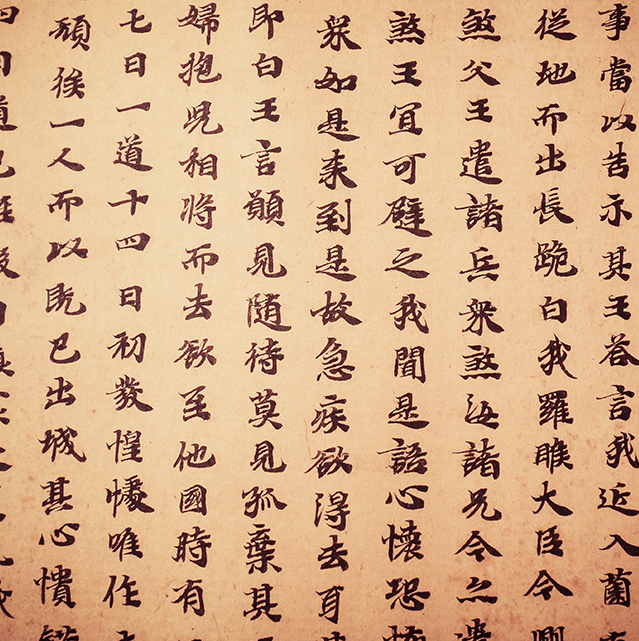 事當以告示其王荅言我近入菌
從地而出長跪白我羅睺大臣令
煞父王遣諸兵衆煞海諸兄今亦
煞王宜可避之我聞是語心懷恐怖
衆如是来到是故急疾欲得去耳
即白王言願見随待莫見孤棄其
婦抱児相将而去欲至他國時有
七日一道十四日初發惶懅唯作
頋俟一人而以既已出城其心憒錯
四日道已